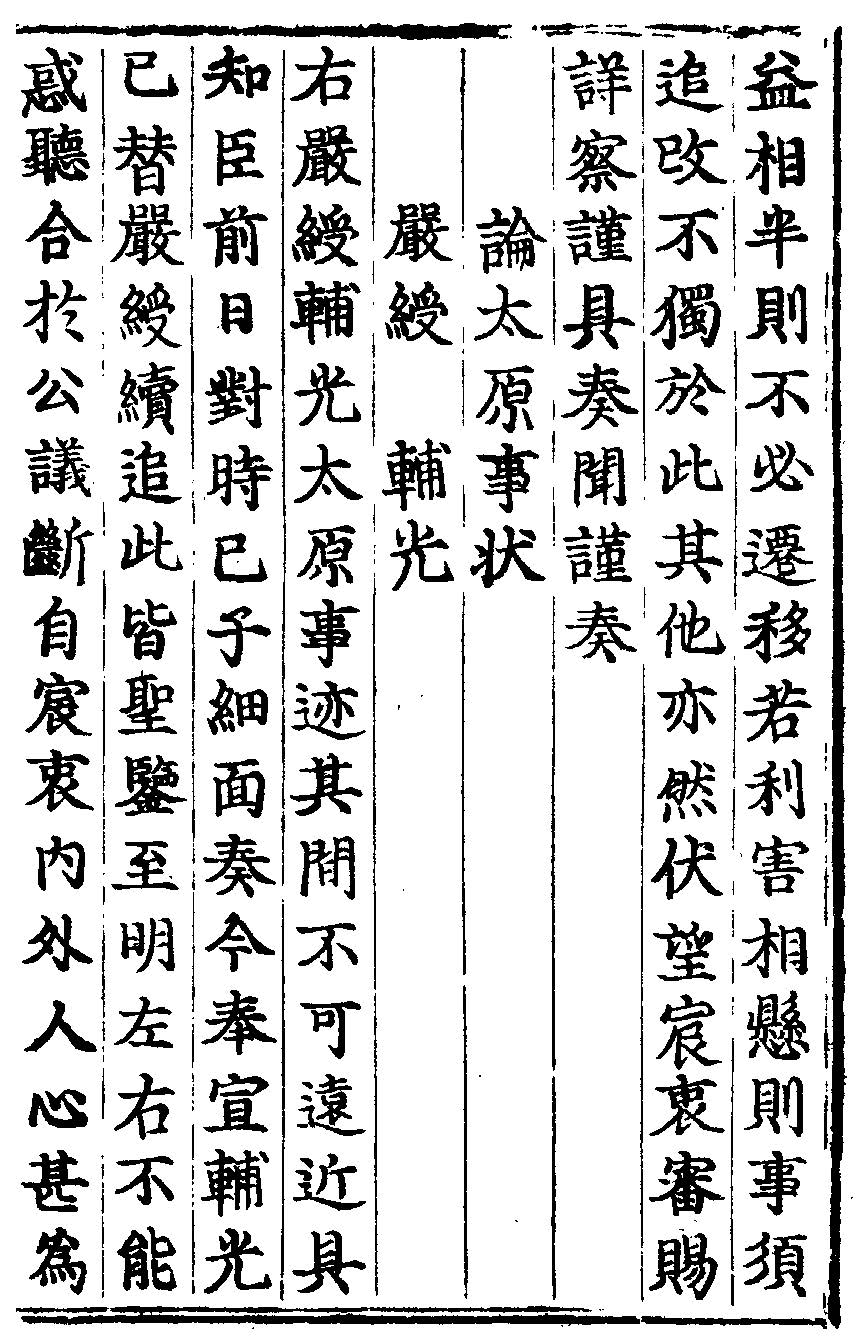 益相半則不必遷移若利害相懸則事須
追改不獨於此其他亦然伏望宸衷審賜
詳察謹具奏聞謹奏
論太原事状
嚴綬　輔光
右嚴綬輔光太原事迹其間不可遠近具
知臣前日對時已子細面奏今奉宣輔光
已替嚴綬續追此皆聖鑒至明左右不能
惑聽合於公議斷自宸衷内外人心甚為